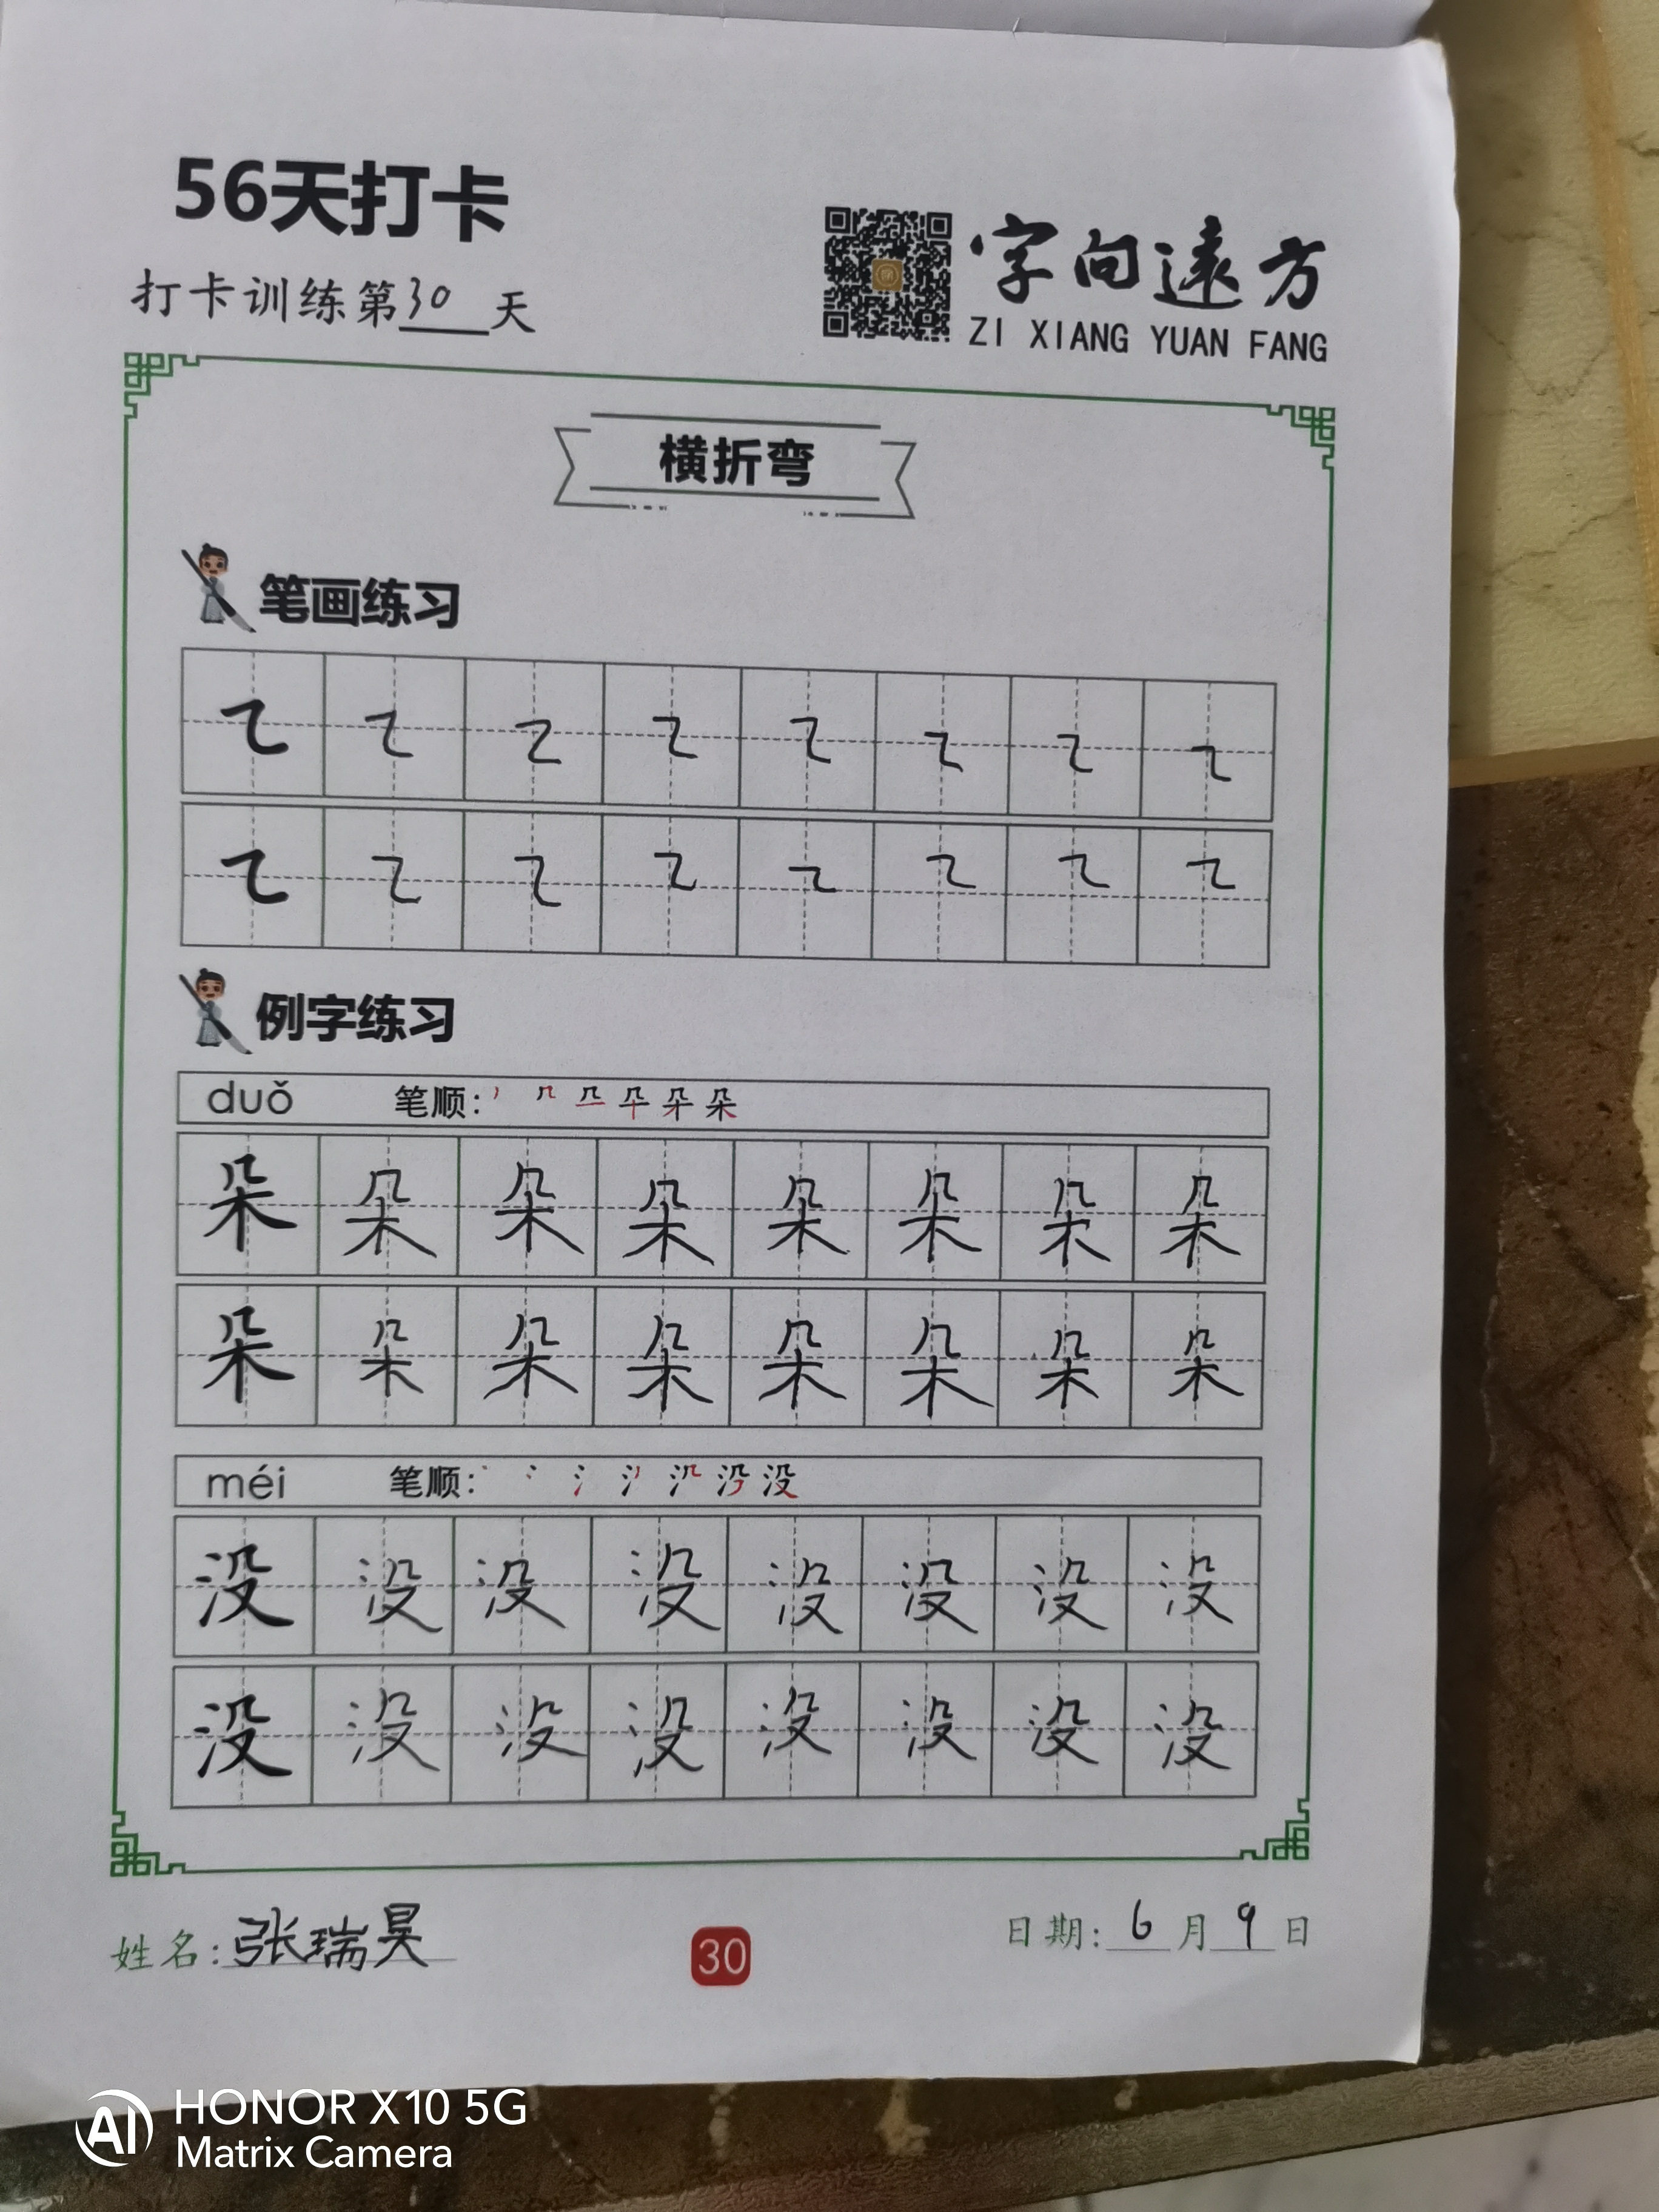 56天打卡
打卡训练第30天
字向遠方
ZI XIANG YUAN FANG
横折弯
笔画练习
例字练习
duǒ 笔顺: 朵
朵 朵 朵 朵 朵 朵 朵 朵
朵 朵 朵 朵 朵 朵 朵 朵
méi 笔顺: 没
没 没 没 没 没 没 没 没
没 没 没 没 没 没 没 没
姓名: 张瑞昊
30
日期: 6月9日
AI HONOR X10 5G
Matrix Camera